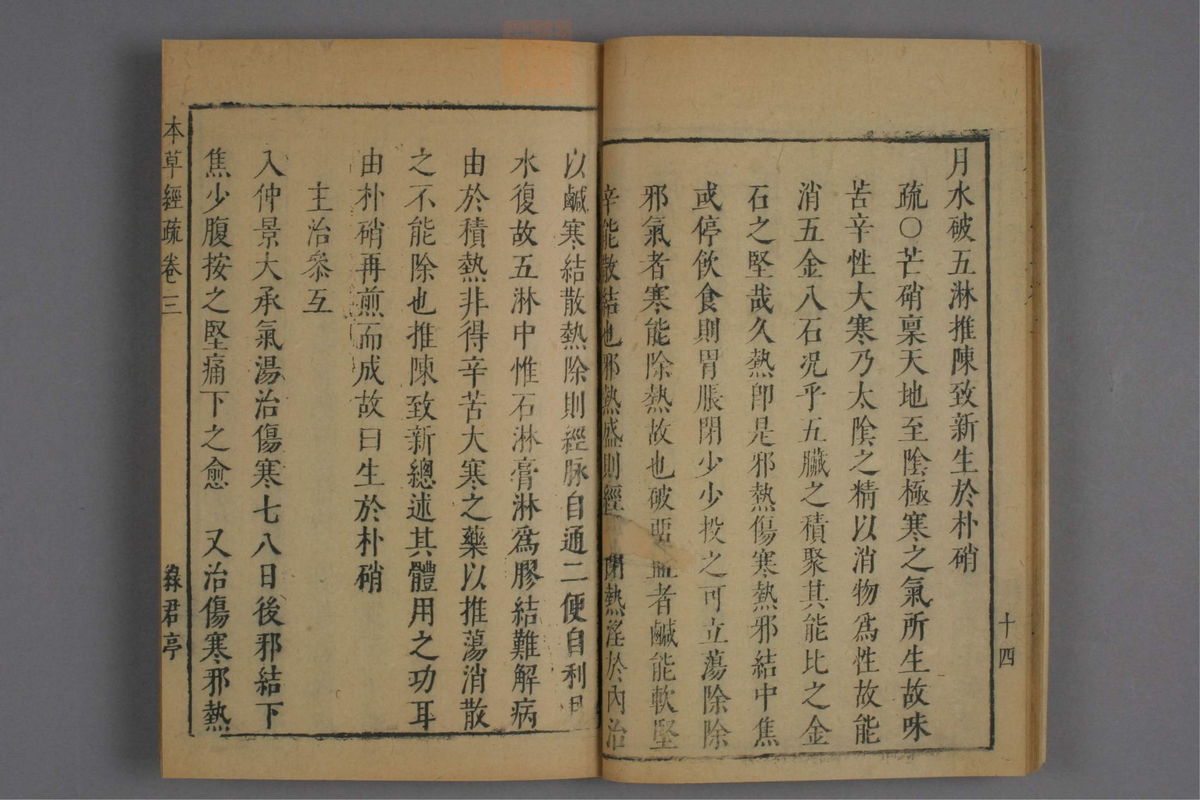 月水破五淋推陳致新生於朴硝
疏○芒硝稟天地至陰極寒之氣所生故味
苦辛性大寒乃太陰之精以消物爲性故能
消五金八石况乎五臟之積聚其能比之金
石之堅哉久熱卽是邪熱傷寒熱邪結中焦
或停飲食則胃脹閉少少投之可立蕩除除
邪氣者寒能除熱故也破者鹹能軟堅
辛能散結也邪熱盛則經閉熱淫於內治
十四
以鹹寒結散熱除則經脉自通二便自利月
水復故五淋中惟石淋膏淋爲膠結難解病
由於積熱非得辛苦大寒之藥以推蕩消散
之不能除也推陳致新總述其體用之功耳
由朴硝再煎而成故曰生於朴硝
主治叅互
入仲景大承氣湯治傷寒七八日後邪結下
焦少腹按之堅痛下之愈 又治傷寒邪熱
本草經疏 卷三 君亭